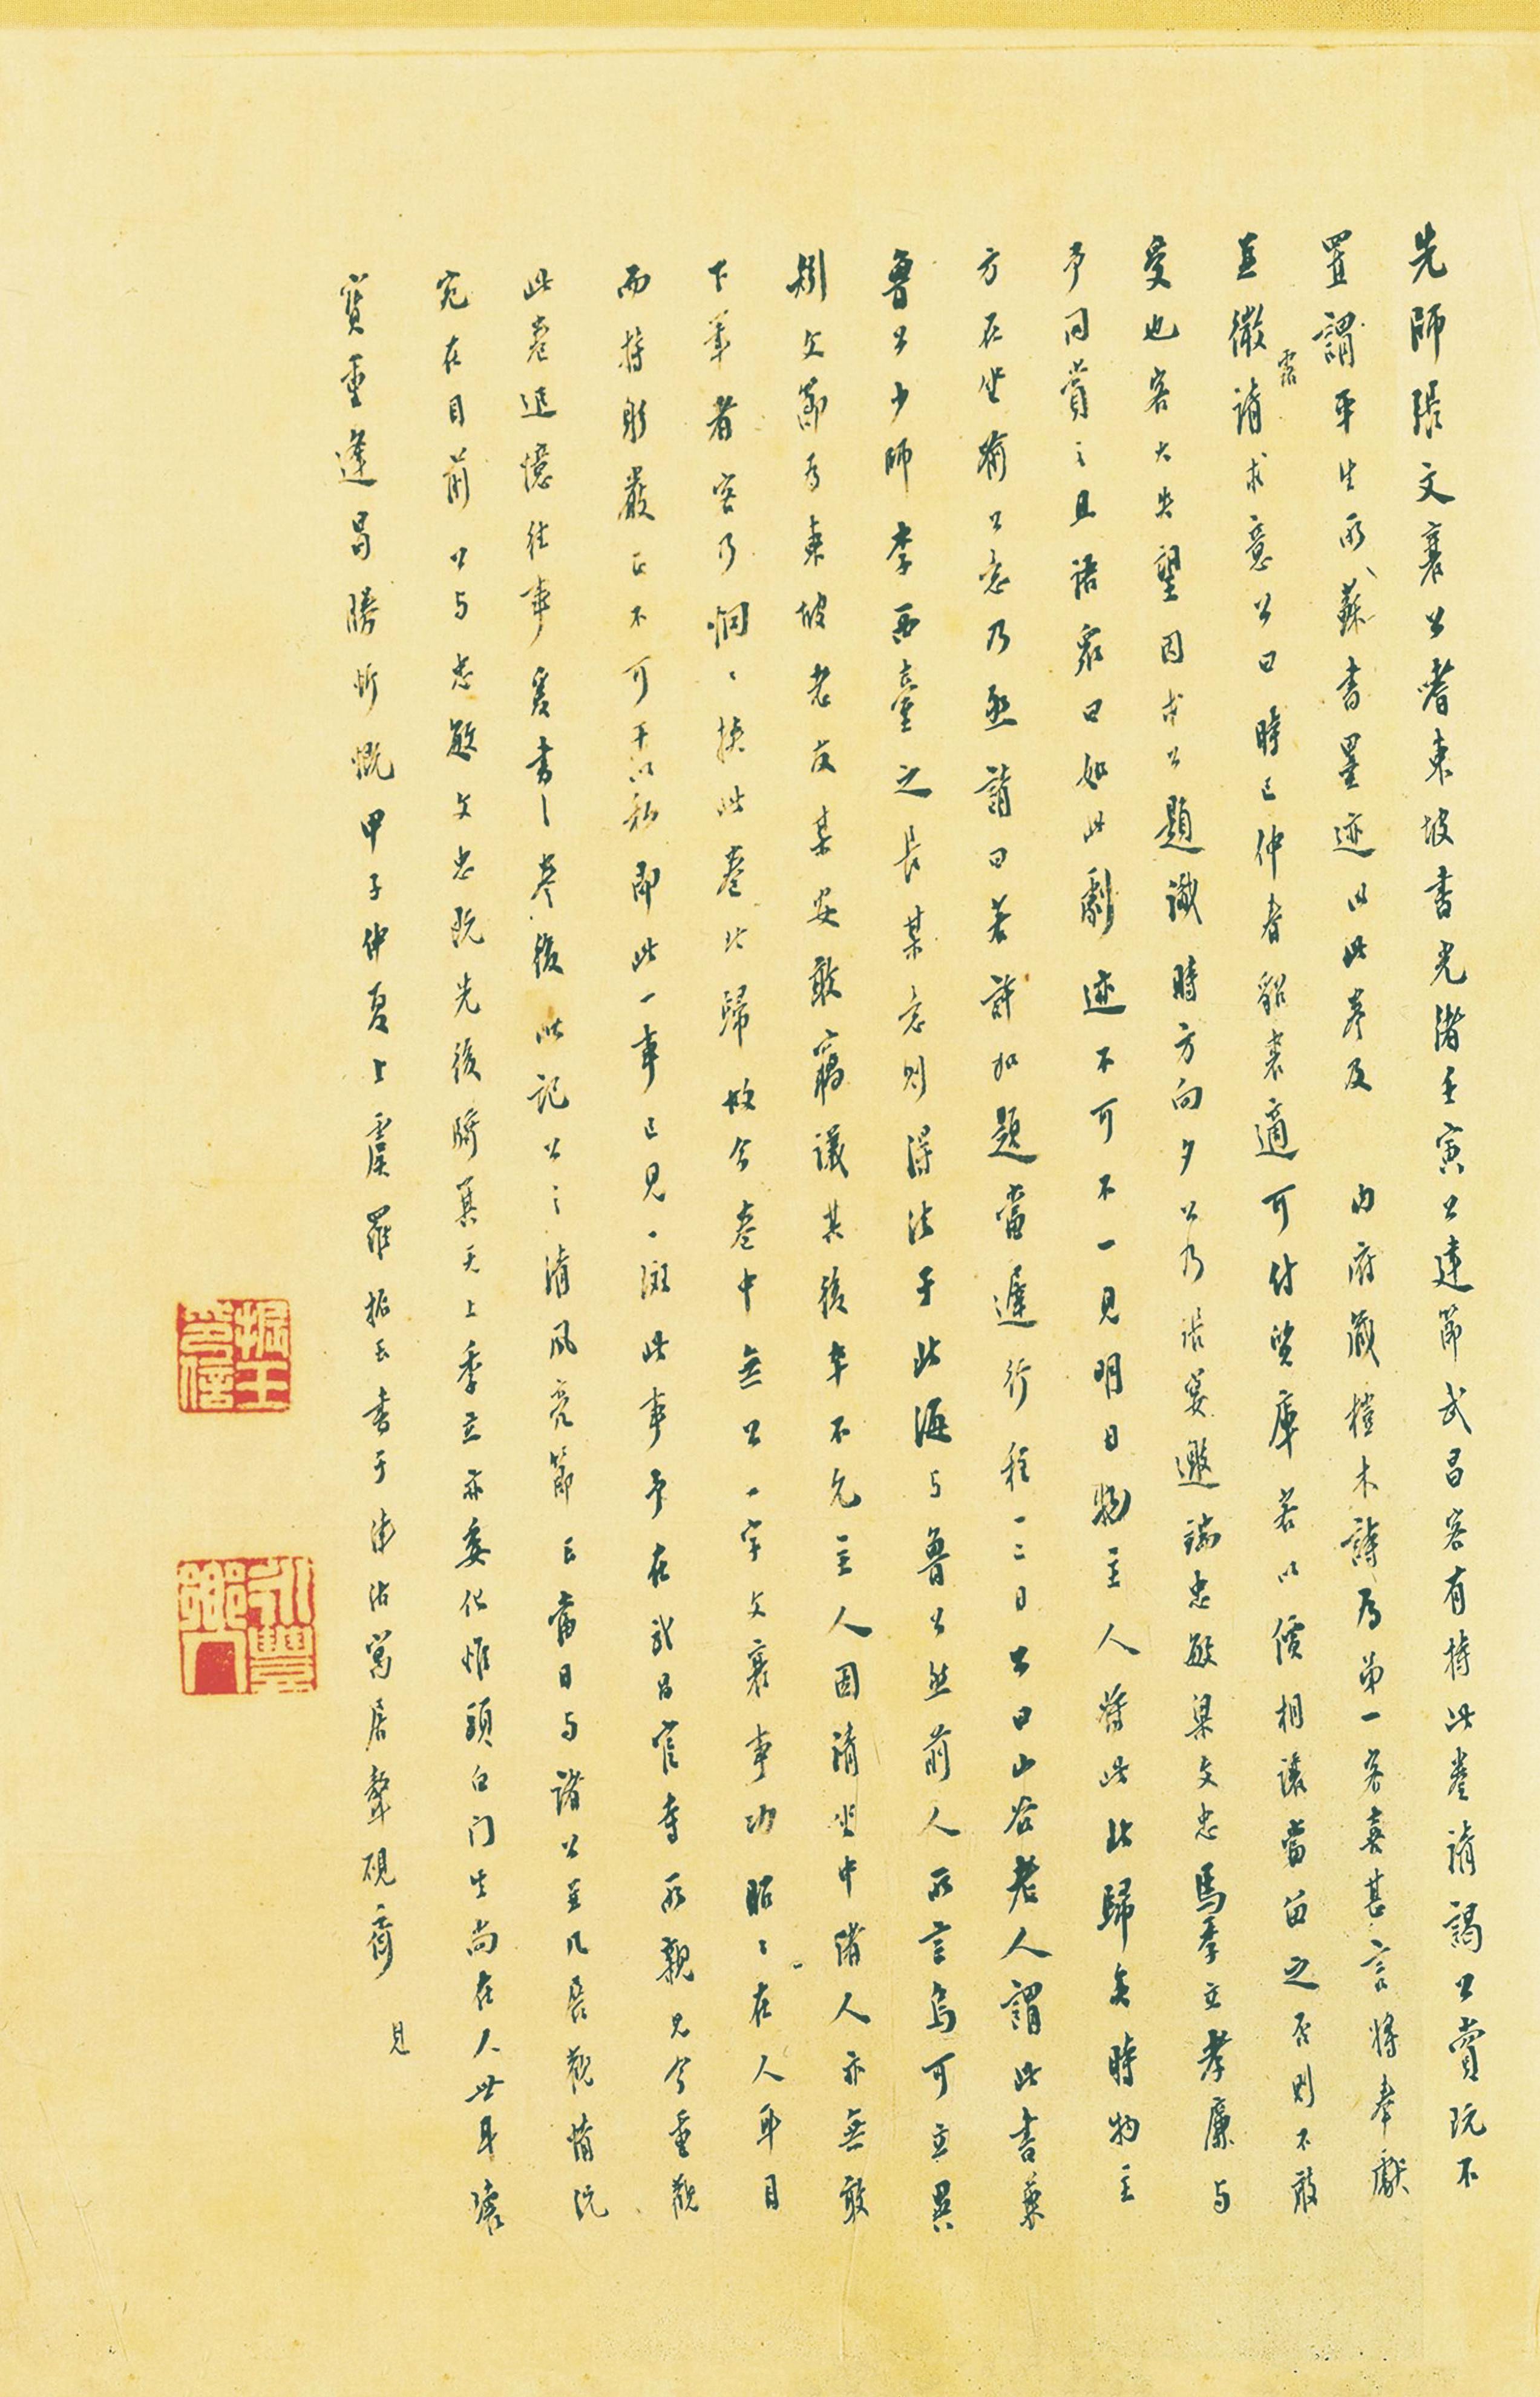 先師張文襄公嗜東坡書光緒壬寅公建節武昌客有持此卷請謁公賞玩不
置謂平生所、蘇書墨迹以此卷及 內府藏榿木詩為第一客喜甚言將奉獻
並微請求意公曰時已仲春貂裘適可付質庫若以價相讓當留之否則不敢
露
受也客大失望因求公題識時方向夕公乃張宴邀端忠敏梁文忠馬季立孝廉與
予同賞之且語眾曰如此劇迹不可不一見明日物主人將此北歸矣時物主
方在坐喻公意乃亟請曰若許加題當遲行程一二日公曰山谷老人謂此書兼
魯公少師李西臺之長某意則得法于北海与魯公然前人所言烏可立異
矧文節為東坡老友某安敢竊議其後卒不允主人因請坐中諸人亦無敢
下筆者客乃惘〻挾此卷北歸故今卷中無公一字文襄事功昭〻在人耳目
而持躬嚴正不可干以私即此一事已見一斑此事予在武昌官寺所親見今重觀
此卷追憶往事爰書卷後以記公之清風亮節且當日与諸公並几展觀情況
宛在目前公与忠敏文忠既先後騎箕天上季立亦委化惟頭白門生尚在人世耳環
寶重逢曷勝忻慨甲子仲夏上虞羅振玉書于津沽寓居聱硯齋
見
振玉印信
永豐鄉人